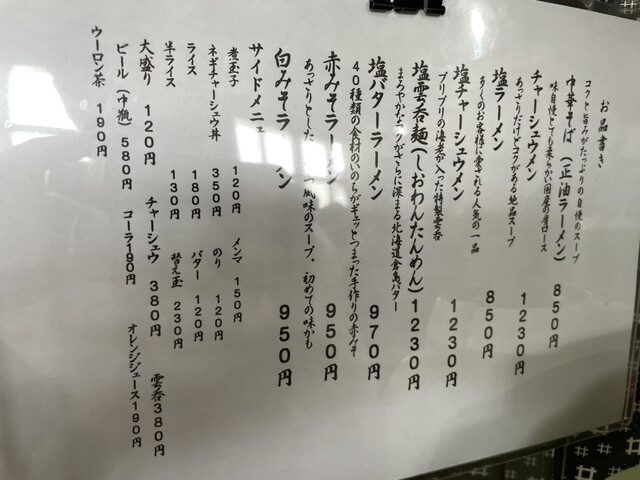 お品書き
コクと旨みがたっぷりの自慢のスープ
中華そば(正油ラーメン) 850円
味自慢とても柔らかい国産の肩ロース
チャーシュウメン 1230円
あっさりだけどコクがある絶品スープ
塩ラーメン 850円
多くのお客様に愛される人気の一品
塩チャーシュウメン 1230円
プリプリの海老が入った特製雲呑
塩雲呑麺(しおわんたんめん) 1230円
まろやかなコクがさらに深まる北海道倉島バター
塩バターラーメン 970円
40種類の食材のいのちがギュッとつまった手作りの赤みそ
赤みそラーメン 950円
あっさりとした 風味のスープ。初めての味かも
白みそラ ン 950円
サイドメニュ
煮玉子 120円 メンマ 150円
ネギチャーシュウ丼 350円 のり 120円
ライス 180円 バター 120円
半ライス 130円 替え玉 230円
大盛り 120円 チャーシュウ 380円 雲呑 380円
ビール(中瓶) 580円 コーラ 190円 オレンジジュース 190円
ウーロン茶 190円